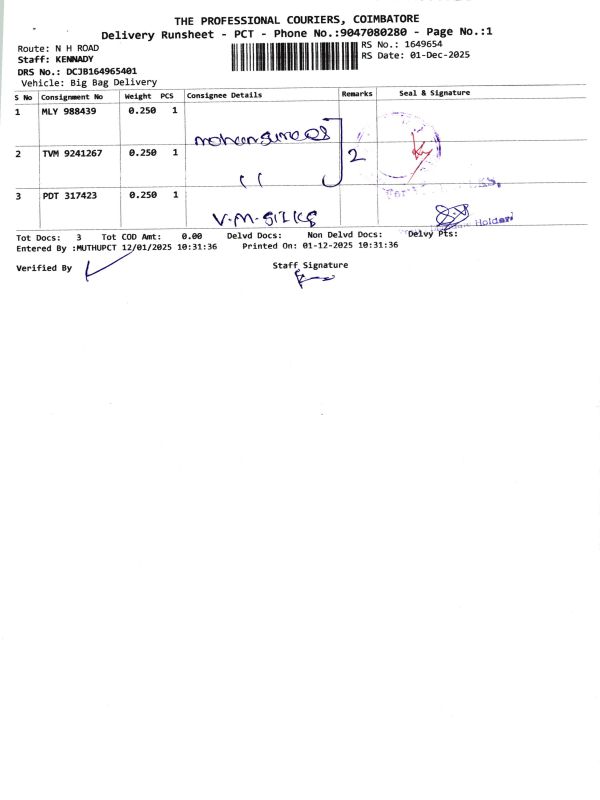 THE PROFESSIONAL COURIERS, COIMBATORE
Delivery Runsheet - PCT - Phone No.:9047080280 - Page No.:1
Route: N H ROAD
RS No.: 1649654
Staff: KENNADY
RS Date: 01-Dec-2025
DRS No.: DCJB164965401
Vehicle: Big Bag Delivery
S No Consignment No Weight PCS Consignee Details Remarks Seal & Signature
1 MLY 988439 0.250 1
2 TVM 9241267 0.250 1 2
3 PDT 317423 0.250 1 V.M.SILKS
Holder
Tot Docs: 3 Tot COD Amt: 0.00 Delvd Docs: Non Delvd Docs: Delvy Pts:
Entered By :MUTHUPCT 12/01/2025 10:31:36 Printed On: 01-12-2025 10:31:36
Verified By Staff Signature